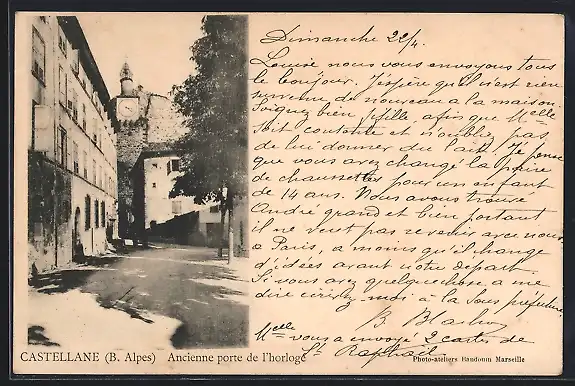 Dimanche 22/4.
Louise nous vous envoyons tous
le bonjour. J'espère qu'il n'est rien
survenu de nouveau a la maison.
Soignez bien fifille afin que Melle
soit contente et n'oubliez pas
de lui donner du lait. Je pense
que vous avez changé la paire
de chaussettes pour un enfant
de 14 ans. Nous avons trouvé
André grand et bien portant
il ne veut pas revenir avec nous
a Paris, a moins qu'il change
d'idées avant notre départ.
Si vous avez quelquechose a me
dire ecrivez moi a la Sous préfecture
Melle vous a envoyé 2 cartes de
St Raphaël
CASTELLANE (B. Alpes) Ancienne porte de l'horloge
Photo-ateliers Baudouin Marseille